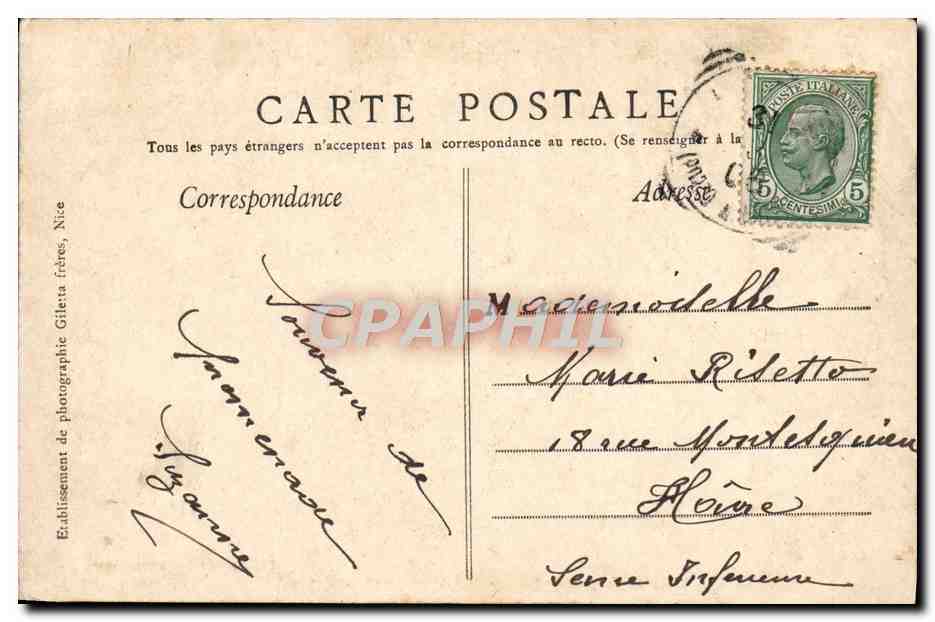 CARTE POSTALE
Tous les pays étrangers n'acceptent pas la correspondance au recto. (Se renseigner à la
Correspondance
Adresse
POSTE ITALIANE
5 5
CENTESIMI
Etablissement de photographie Giletta frères, Nice
Souvenir de
promenade
Suzanne
CPAPHIL
Mademoiselle
Marie Risetto
18 rue Montesquieu
Hâvre
Seine Inférieure